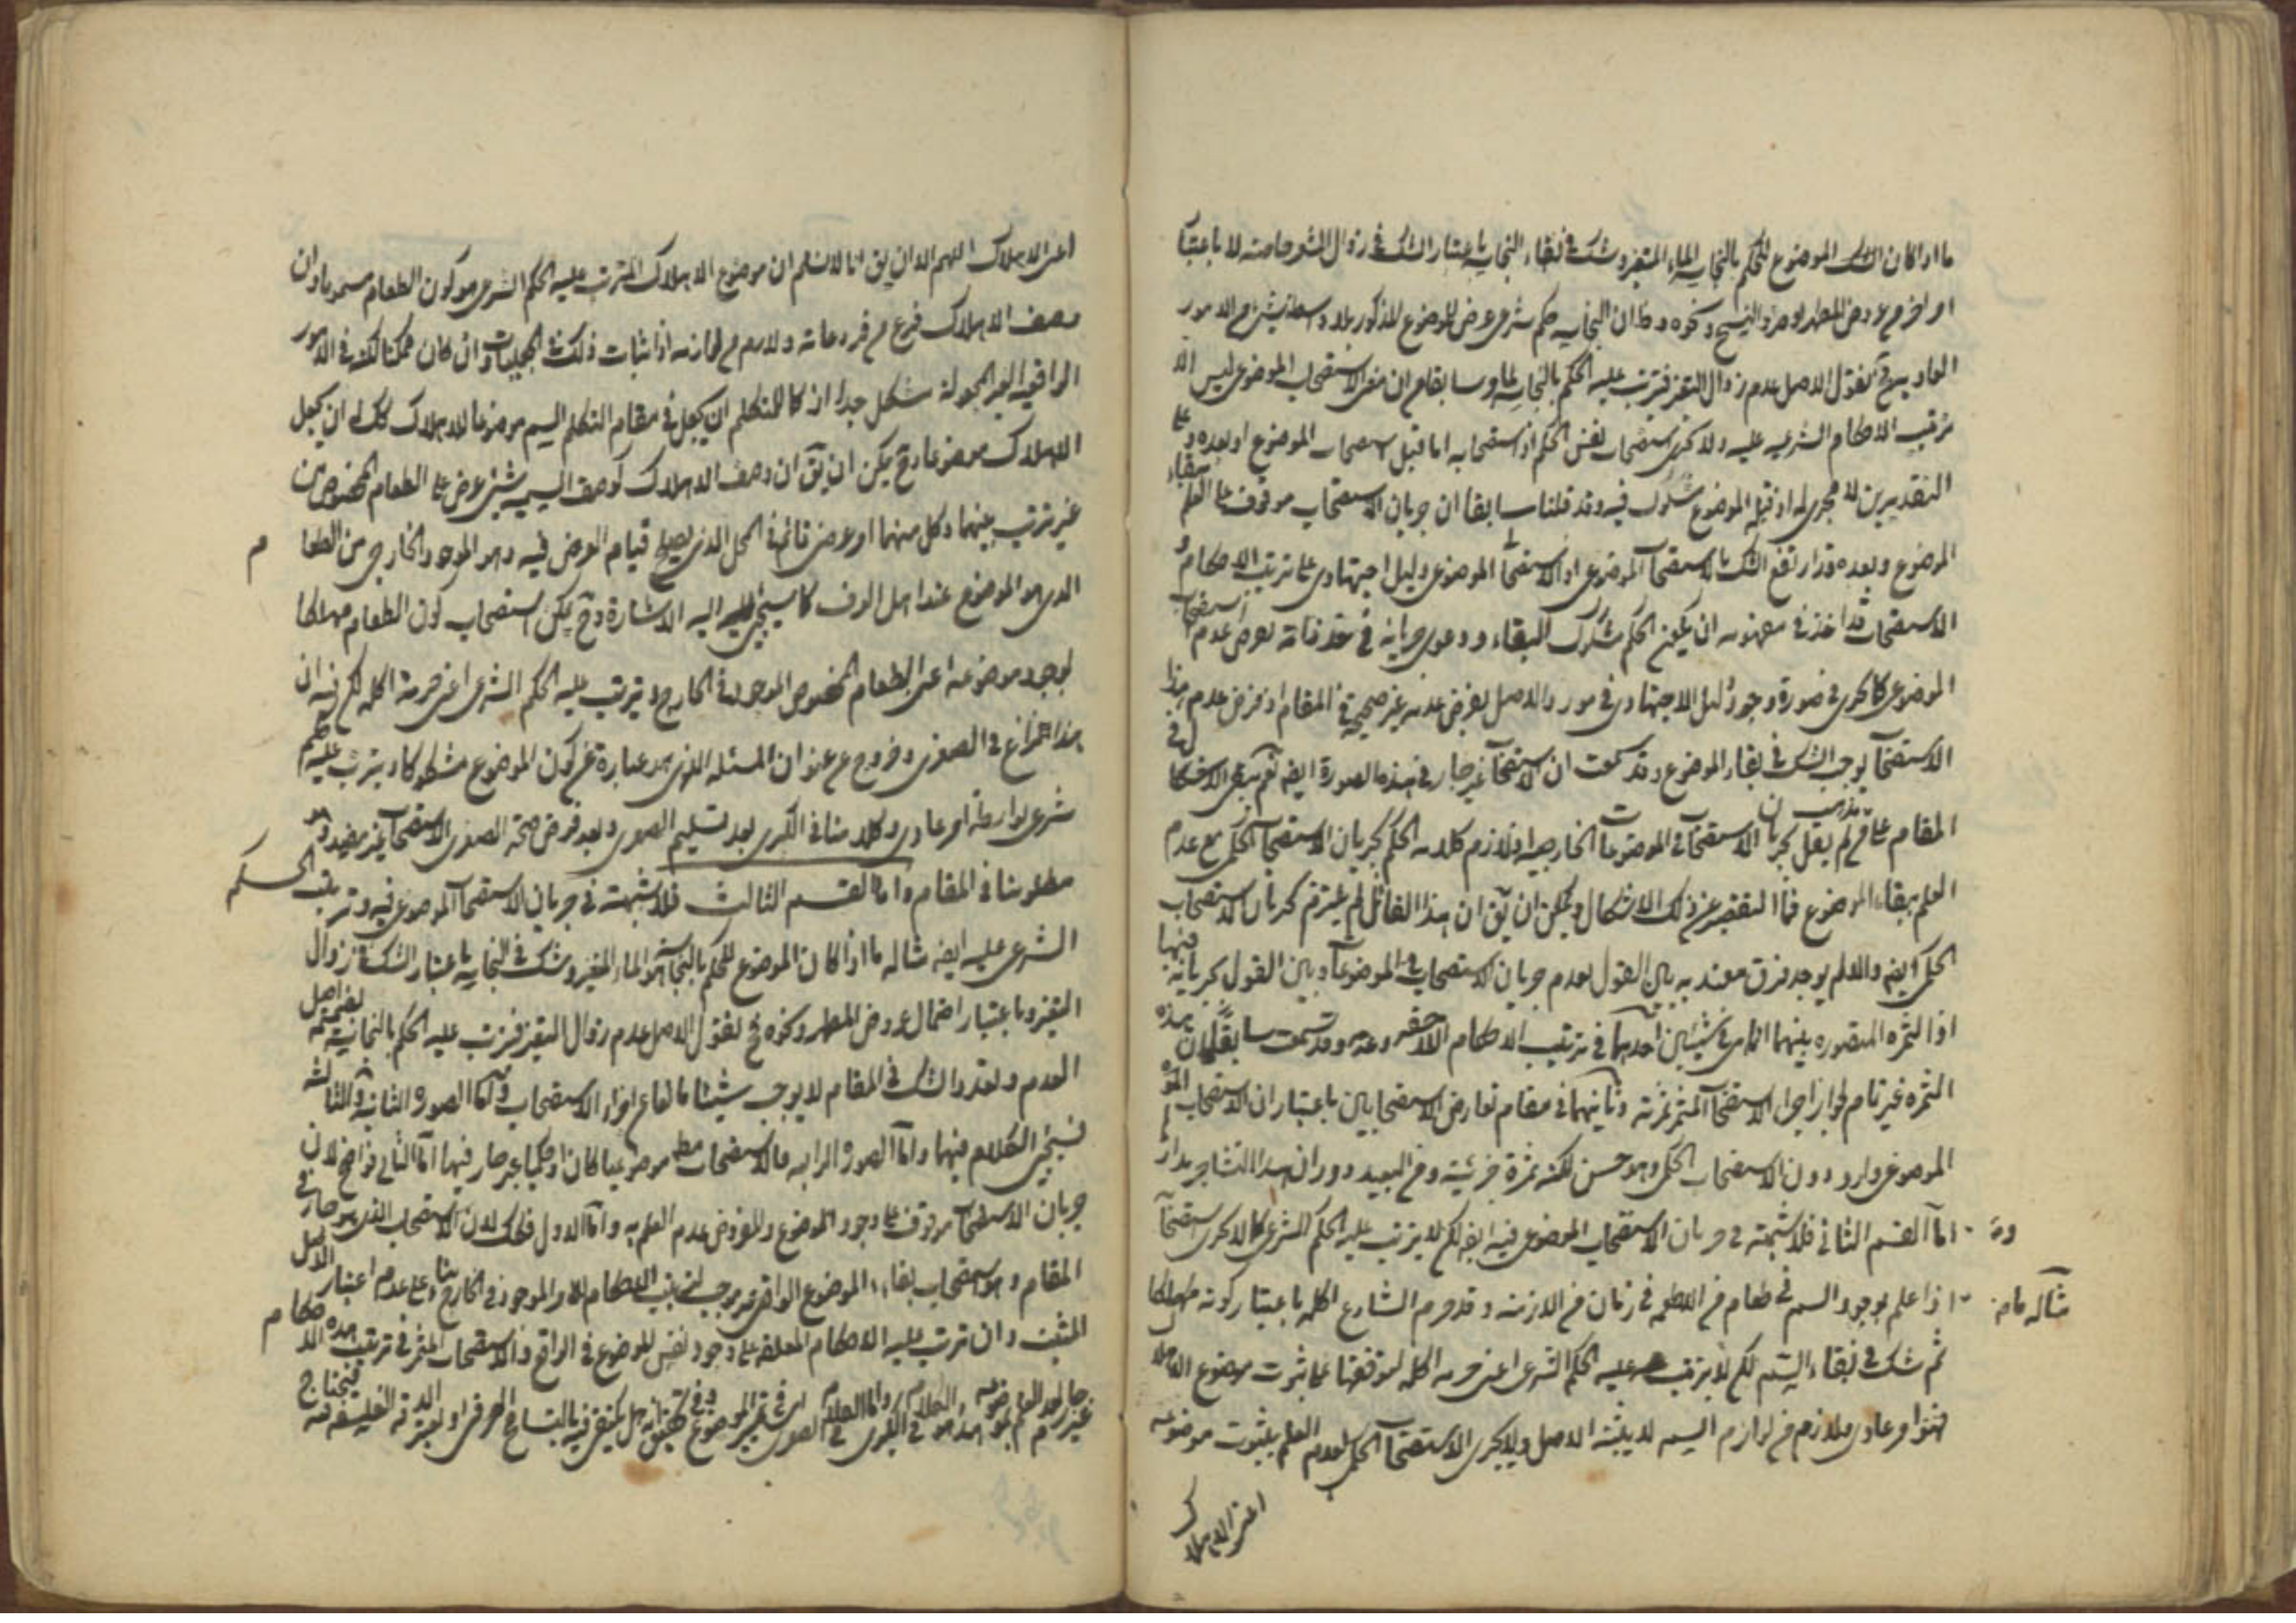 ما اذا كان الشك الموضوع للحكم بالنجاسة الماء المتغير وشك في بقاء النجاسة باعتبار الشك في زوال التغير عنه لا باعتبار
امر اخر من عروض المطهر او ونحوه و ان النجاسة حكم شرعى عرض للموضوع المذكور بلا واسطة شئ من الامور
العادية فح نقول الاصل عدم زوال التغير فترتب عليه الحكم بالنجاسة لما سابقا من ان معنى الاستصحاب الموضوعى ليس الا
ترتب الاحكام الشرعيه عليه ولا يجرى استصحاب نفس الحكم اذ استصحابه اما قبل استصحاب الموضوع او بعده وعلى
التقديرين لا مجرى له اذ قبله الموضوع مشكوك فيه وقد قلنا سابقا ان جريان الاستصحاب موقوف على العلم ببقاء
الموضوع وبعده قد ارتفع الشك بالاستصحاب الموضوعى اذ الاستصحاب الموضوعى دليل اجتهادى على ترتب الاحكام و
الاستصحاب قد اخذ في مفهومه ان يكون الحكم مشكوك البقاء ودعوى جريانه في حد ذاته بفرض عدم استصحاب
الموضوعى كما يجرى في صورة وجود دليل الاجتهادى في مورد والاصل بفرض عدمه غير صحيح في المقام اذ فرض عدم هذا
الاستصحاب يوجب الشك في بقاء الموضوع وقد سمعت ان الاستصحاب غير جار في هذه الصورة ايضا نعم يبقى الاشكال في
المقام على مذهب من لم يقل بجريان الاستصحاب في الموضوعات الخارجيه اذ لازم كلامه الحكم بجريان الاستصحاب الحكمى مع عدم
العلم ببقاء الموضوع فما التفصى عن ذلك الاشكال ويمكن ان يق ان هذا القائل لم يلتزم بجريان الاستصحاب
الحكمى ايضا والا لم يوجد فرق معتد به بين القول بعدم جريان الاستصحاب في الموضوعات وبين القول بجريانه فيها
اذ الثمره المتصوره بينهما انما هى في شيئين احدهما في ترتيب الاحكام وعدمه وقد سمعت سابقا ان هذه
الثمره غير تام لجواز اجراء الاستصحاب المثمر ثمرته وثانيهما في مقام تعارض الاستصحابين باعتبار ان الاستصحاب
الموضوعى وارد دون الاستصحاب الحكمى وهو حسن لكنه ثمرة جزئية ومن البعيد دوران هذا التشاجر مدار
اما القسم الثانى فلا شبهة في جريان الاستصحاب الموضوعى فيه ايضا لكن لا يترتب عليه الحكم الشرعى كما لا يجرى استصحاب
مثاله ما
اذا علم بوجود السم في طعام من الاطعمه في زمان من الازمنه وقد حرم الشارع اكله باعتبار كونه مهلكا
ثم شك في بقاء السم لكن لا يترتب عليه الحكم الشرعى اعنى حرمه اكله لتوقفها على ثبوت موضوع الاهلاك
فهو امر عادى ملازم من لوازم السم لا يثبته الاصل ولا يجرى الاستصحاب الحكمى لعدم العلم بثبوت موضوعه
اعنى الاهلاك
اعنى الاهلاك اللهم الا ان يق انا لا نسلم ان موضوع الاهلاك المترتب عليه الحكم الشرعى هو كون الطعام مسموما وان
وصف الاهلاك فرع من فروعاته ولازم من لوازمه اذ اثبات ذلك في الجعليات وان كان ممكنا لكنه في الامور
الواقعيه الغير المجعولة مشكل جدا اذ كما للمتكلم ان يجعل في مقام التكلم السم موضوعا للاهلاك كك له ان يجعل
الاهلاك موضوعا وح يمكن ان يق ان وصف الاهلاك كوصف السميه شئ عرض على الطعام المخصوص من
غير ترتب بينهما وكل منهما امر عرض قائم في المحل الذى يصلح قيام العرض فيه وهو الموجود الخارجى من الطعام
الذى هو الموضوع عند اهل العرف كما سيجئ اليه الاشارة وح يمكن استصحاب كون الطعام مهلكا
لوجود موضوعه اعنى الطعام المخصوص الموجود في الخارج و يترتب عليه الحكم الشرعى اعنى حرمة اكله لكن فيه ان
هذا نزاع في الصغرى وخروج عن عنوان المسئله التى هى عبارة عن كون الموضوع مشكوكا و يترتب عليه حكم
شرعى بواسطة امر عادى وكلامنا في الكبرى بعد تسليم الصغرى وبعد فرض صحة الصغرى الاستصحاب غير مفيد وهو
مطلوبنا في المقام واما القسم الثالث فلا شبهة في جريان الاستصحاب الموضوعى فيه وترتب الحكم
الشرعى عليه ايضا مثاله ما اذا كان الموضوع للحكم بالنجاسة هو الماء المتغير وشك في النجاسة باعتبار الشك في زوال
التغير وباعتبار احتمال عروض المطهر ونحوه فح نقول الاصل عدم زوال التغير فترتب عليه الحكم بالنجاسة بضميمة اصل
العدم وتعدد الشك في المقام لا يوجب شيئا مانعا من اجراء الاستصحاب واما الصورة الثانية والثالثه
فسيجئ الكلام فيهما واما الصورة الرابعه فالاستصحاب مط موضوعيا كان او حكميا غير جار فيها اما الثانى فواضح لان
جريان الاستصحاب موقوف على وجود الموضوع والمفروض عدم العلم به واما الاول فكك لان الاستصحاب الذى هو جار في
المقام وهو استصحاب بقاء الموضوع الواقعى غير موجب لترتيب الاحكام للامر الموجود في الخارج بناء على عدم اعتبار الاصل
المثبت وان ترتب عليه الاحكام المعلقه على وجود نفس الموضوع في الواقع والاستصحاب المثمر في ترتيب هذه الاحكام
غير جار لعدم العلم بموضوعه هذا هو الكلام في الكبرى واما الكلام في الصغرى اى في تميز الموضوع وفي تحققه انه هل يكتفى فيه بالتسامح العرفى او يعتبر الدقة الفلسفيه فيحتاج